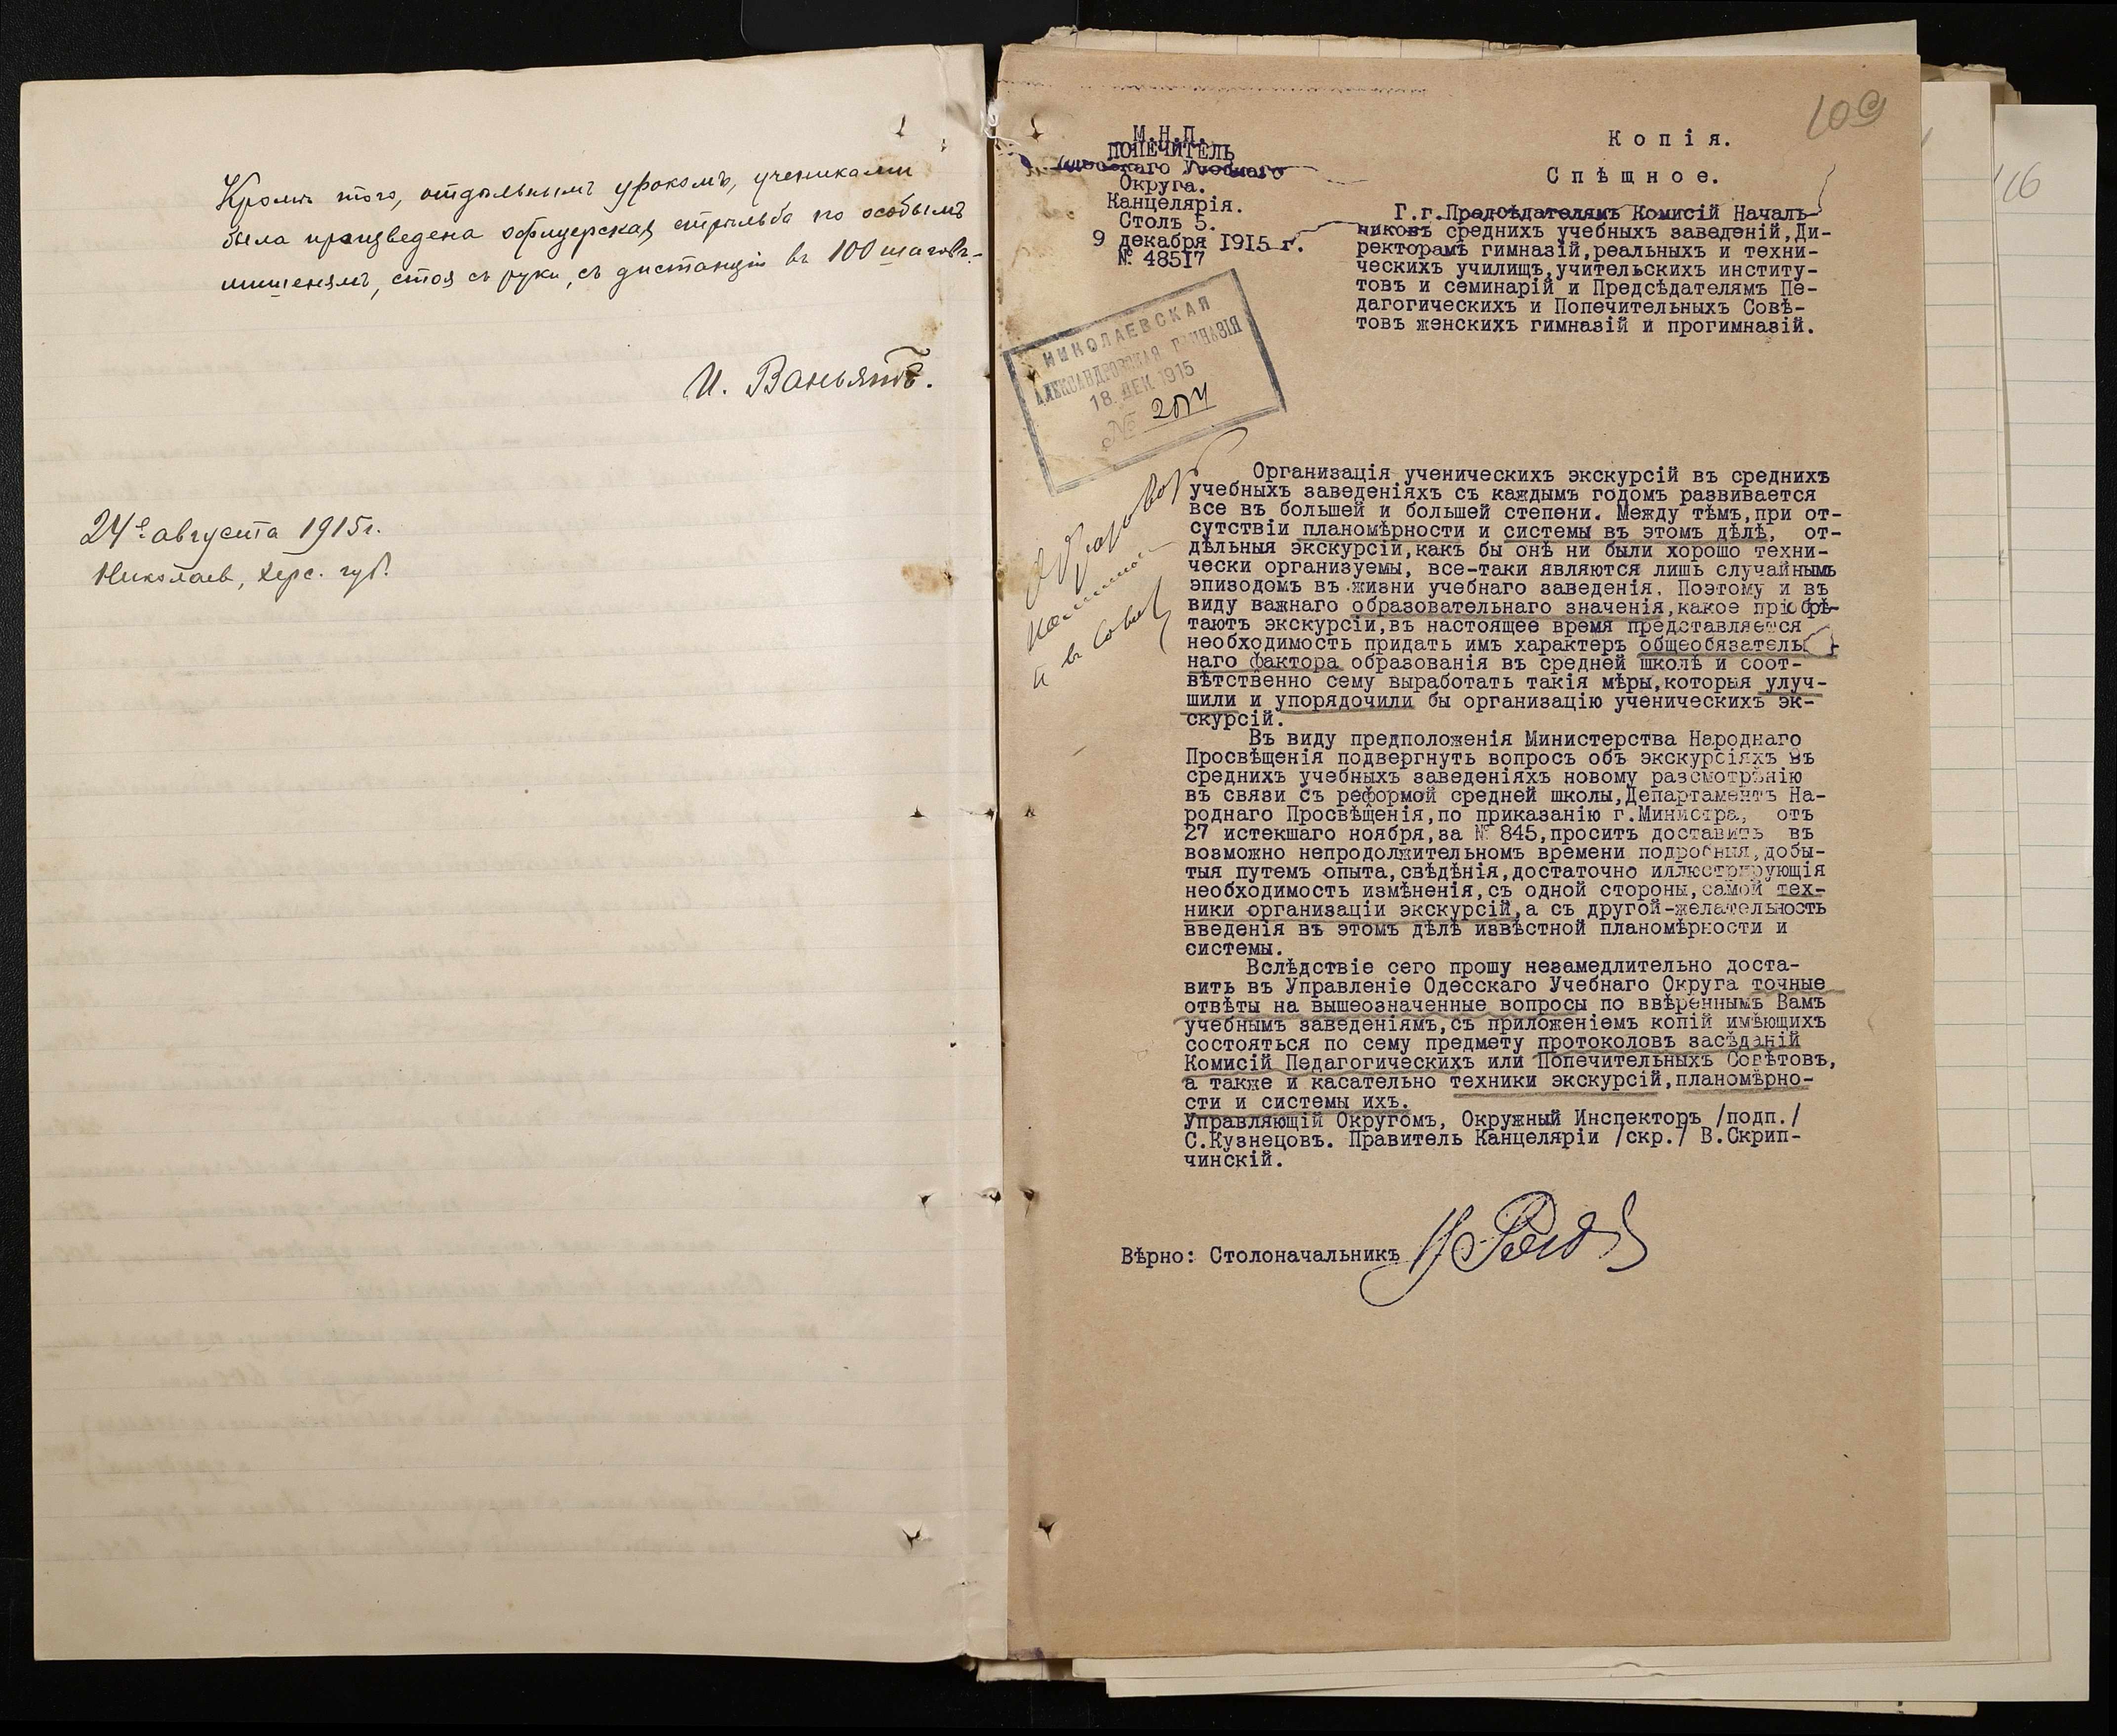 Кромѣ того, отдѣльнымъ урокомъ, учениками
была произведена офицерская стрѣльба по особымъ
мишенямъ, стоя съ руки, съ дистанціи въ 100 шаговъ.-
И. Ваньятъ.
24го августа 1915г.
Николаев, Херс. губ.
109
16
М.Н.П.
ПОПЕЧИТЕЛЬ
Учебнаго
Округа.
Канцелярія.
Столъ 5.
9 декабря 1915 г.
№ 48517
Копія.
Спѣшное.
Г.г.Предсѣдателямъ Комисій Началь-
никовъ среднихъ учебныхъ заведеній,Ди-
ректорамъ гимназій,реальныхъ и техни-
ческихъ училищъ,учительскихъ институ-
товъ и семинарій и Предсѣдателямъ Пе-
дагогическихъ и Попечительныхъ Совѣ-
товъ женскихъ гимназій и прогимназій.
НИКОЛАЕВСКАЯ
АЛЕКСАНДРОВСКАЯ ГИМНАЗІЯ
18. ДЕК. 1915
№
и въ Совѣт
Организація ученическихъ экскурсій въ среднихъ
учебныхъ заведеніяхъ съ каждымъ годомъ развивается
все въ большей и большей степени. Между тѣмъ,при от-
сутствіи планомѣрности и системы въ этомъ дѣлѣ, от-
дѣльныя экскурсіи,какъ бы онѣ ни были хорошо техни-
чески организуемы, все-таки являются лишь случайнымъ
эпизодомъ въ жизни учебнаго заведенія. Поэтому и въ
виду важнаго образовательнаго значенія,какое пріобрѣ-
таютъ экскурсіи,въ настоящее время представляется
необходимость придать имъ характеръ общеобязатель-
наго фактора образованія въ средней школѣ и соот-
вѣтственно сему выработать такія мѣры,которыя улуч-
шили и упорядочили бы организацію ученическихъ эк-
скурсій.
Въ виду предположенія Министерства Народнаго
Просвѣщенія подвергнуть вопросъ объ экскурсіяхъ въ
среднихъ учебныхъ заведеніяхъ новому разсмотрѣнію
въ связи съ реформой средней школы,Департаментъ На-
роднаго Просвѣщенія,по приказанію г.Министра, отъ
27 истекшаго ноября,за № 845,проситъ доставить въ
возможно непродолжительномъ времени подробныя,добы-
тыя путемъ опыта,свѣдѣнія,достаточно иллюстрирующія
необходимость измѣненія,съ одной стороны,самой тех-
ники организаціи экскурсій,а съ другой-желательность
введенія въ этомъ дѣлѣ извѣстной планомѣрности и
системы.
Вслѣдствіе сего прошу незамедлительно доста-
вить въ Управленіе Одесскаго Учебнаго Округа точные
отвѣты на вышеозначенные вопросы по ввѣреннымъ Вамъ
учебнымъ заведеніямъ,съ приложеніемъ копій имѣющихъ
состояться по сему предмету протоколовъ засѣданій
Комисій Педагогическихъ или Попечительныхъ Совѣтовъ,
а также и касательно техники экскурсій,планомѣрно-
сти и системы ихъ.
Управляющій Округомъ, Окружный Инспекторъ /подп./
С.Кузнецовъ. Правитель Канцеляріи /скр./ В.Скрип-
чинскій.
Вѣрно: Столоначальникъ